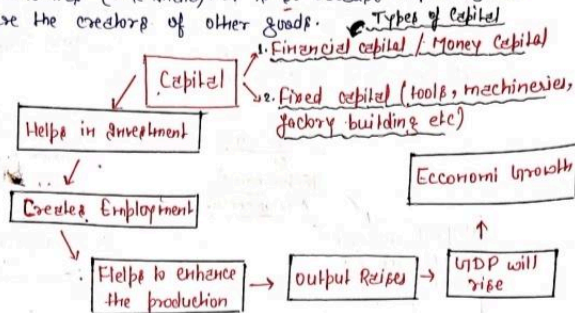 re the creators of other goods.
Types of Capital
Capital
1. Financial capital / Money Capital
2. Fixed capital (tools, machineries,
factory building etc)
Helps in Investment
Creates Employment
Helps to enhance
the production
output Raises
GDP will
rise
Ecconomi Growth